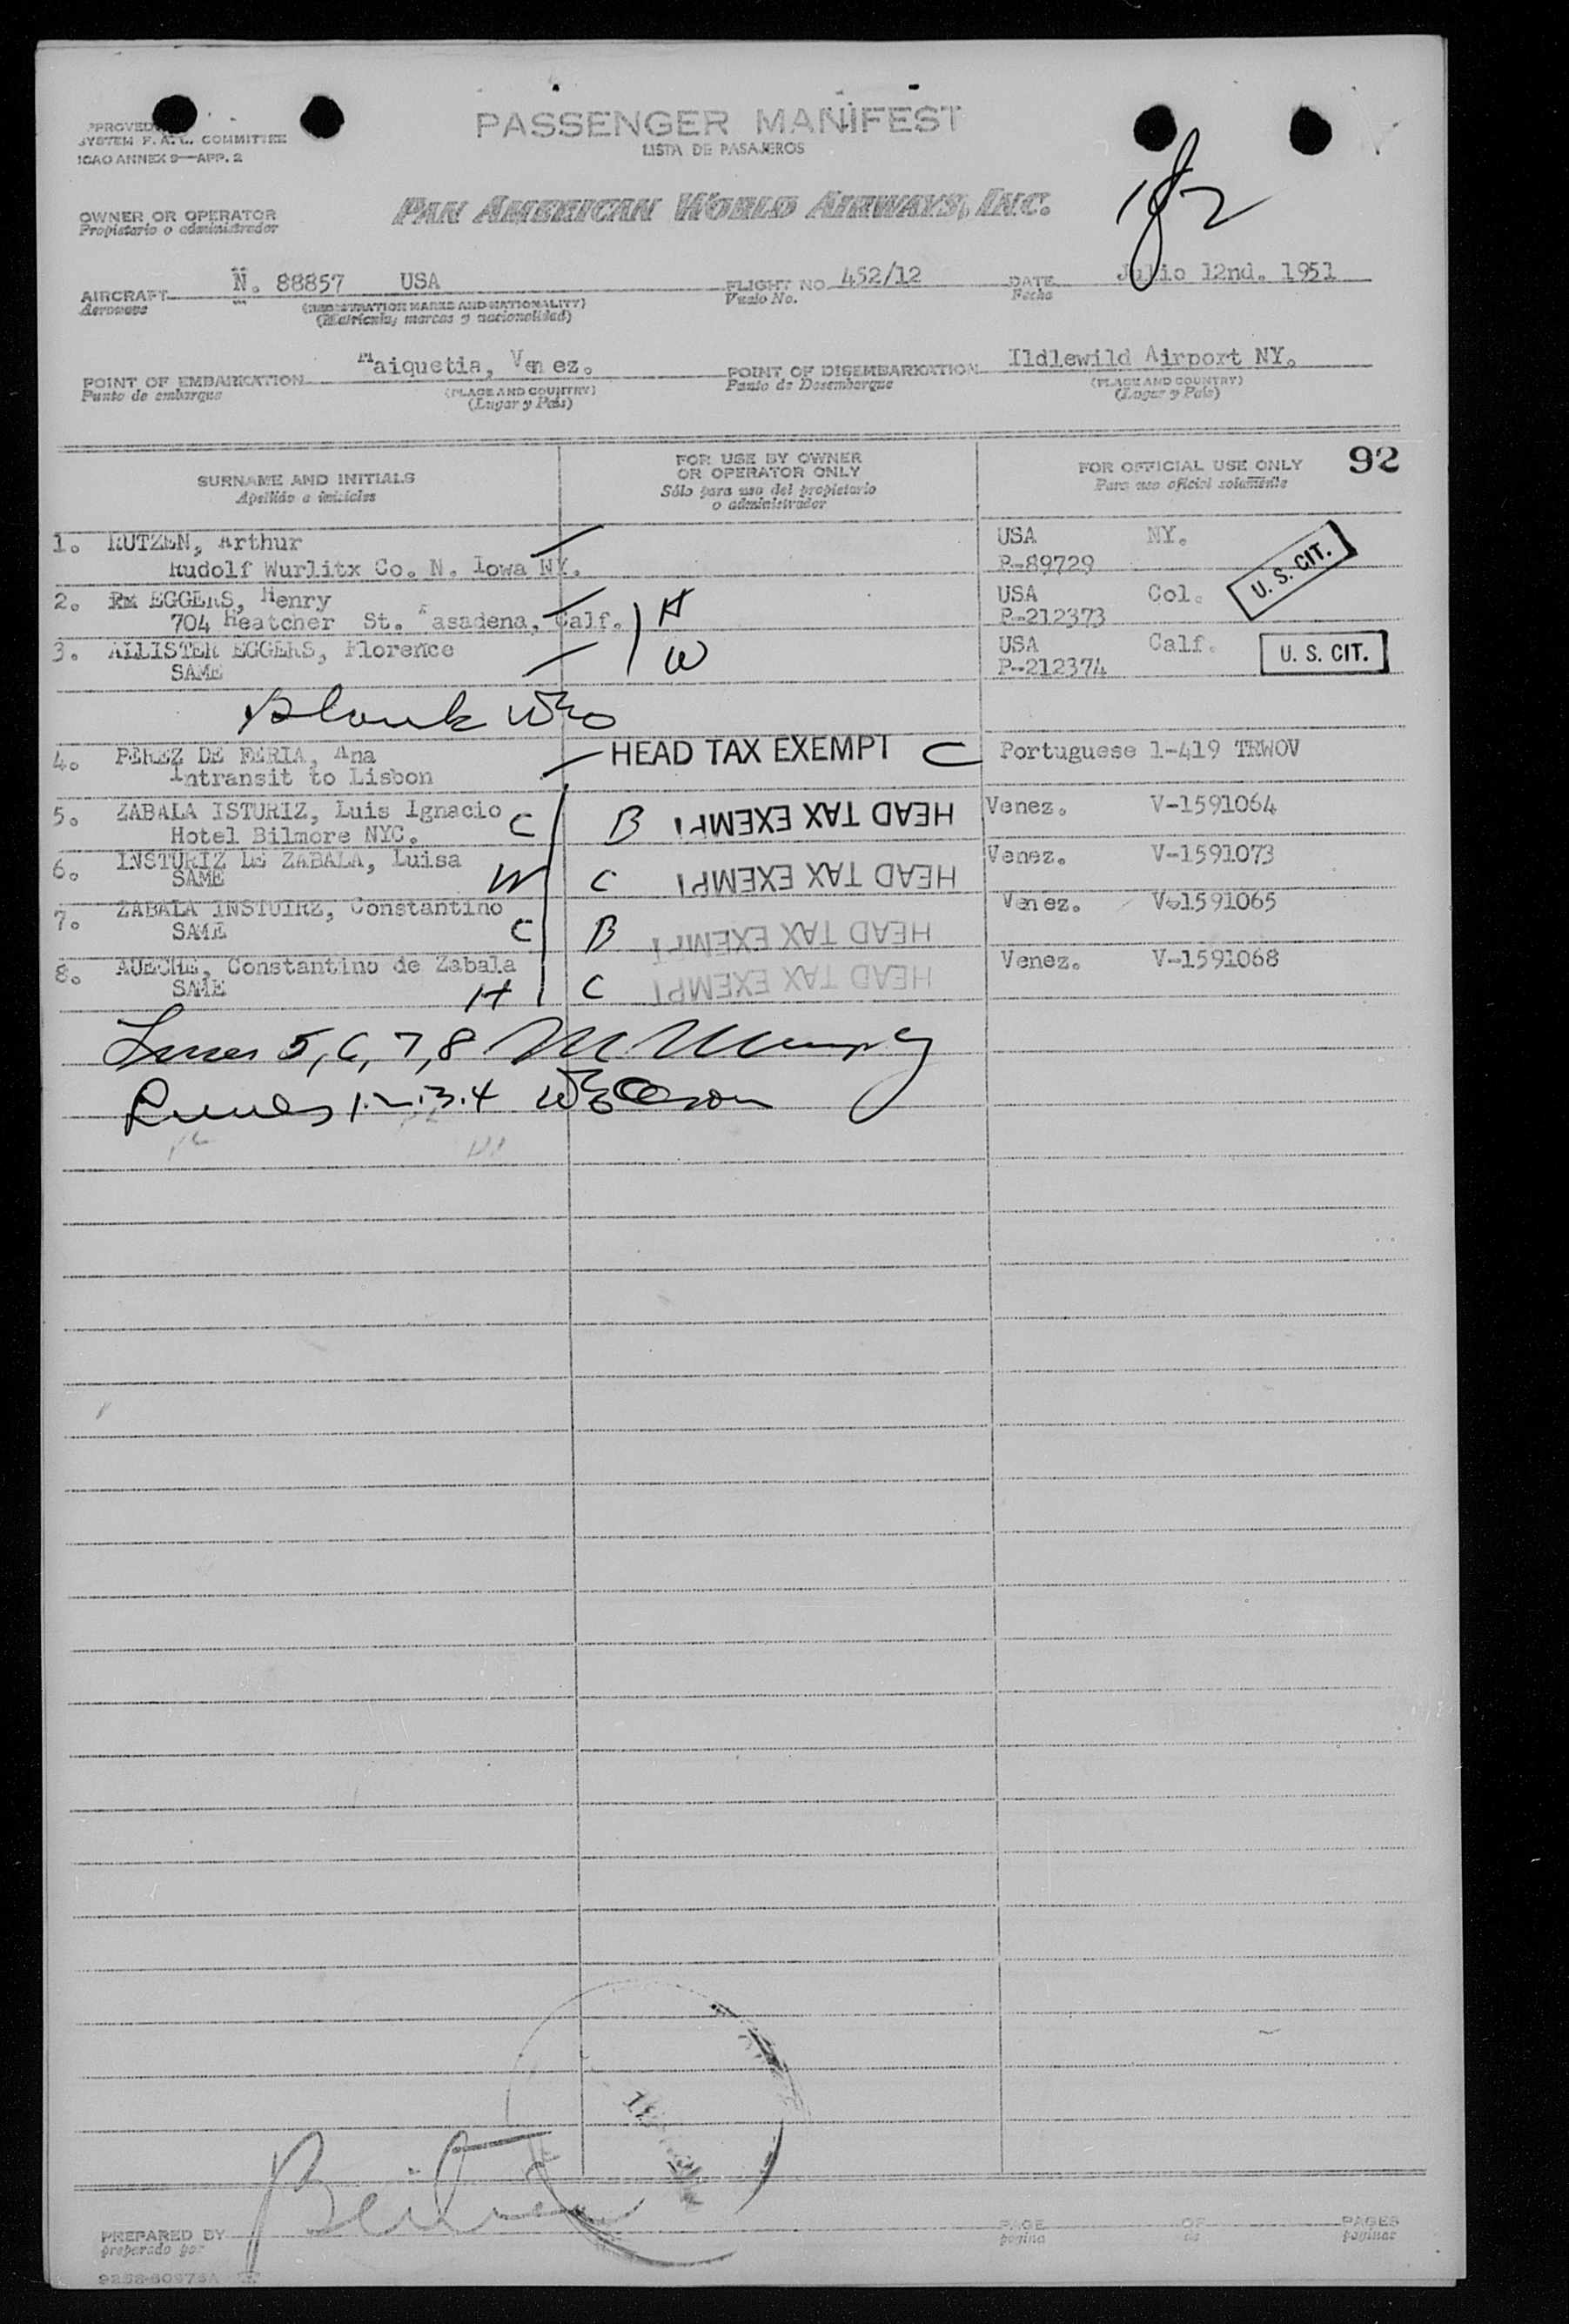 PASSENGER MANIFEST
LISTA DE PASAJEROS
APPROVED
SYSTEM F. A. L. COMMITTEE
ICAO ANNEX 9—APP. 2
182
OWNER OR OPERATOR
Propietario o administrador
PAN AMERICAN WORLD AIRWAYS, INC.
AIRCRAFT N. 88857 USA FLIGHT NO. 452/12 DATE Julio 12nd. 1951
Aeronave (REGISTRATION MARKS AND NATIONALITY) Vuelo No. Fecha
(Matricula, marcas y nacionalidad)
POINT OF EMBARKATION Maiquetia, Venez. POINT OF DISEMBARKATION Ildlewild Airport NY.
Punto de embarque (PLACE AND COUNTRY) Punto de Desembarque (PLACE AND COUNTRY)
(Lugar y País) (Lugar y País)
92
SURNAME AND INITIALS FOR USE BY OWNER OR OPERATOR ONLY FOR OFFICIAL USE ONLY
Apellido e iniciales Sólo para uso del propietario o administrador Para uso oficial solamente
1. RUTZEN, Arthur USA NY.
Rudolf Wurlitx Co. N. Iowa NY. P-89729 U. S. CIT.
2. EGGERS, Henry H USA Col.
704 Heatcher St. Pasadena, Calf. P-212373
3. ALLISTER EGGERS, Florence W USA Calf. U. S. CIT.
SAME P-212374
Blank
4. PEREZ DE FERIA, Ana HEAD TAX EXEMPT C Portuguese 1-419 TRWOV
Intransit to Lisbon
5. ZABALA ISTURIZ, Luis Ignacio C B HEAD TAX EXEMPT Venez. V-1591064
Hotel Bilmore NYC.
6. INSTURIZ DE ZABALA, Luisa W C HEAD TAX EXEMPT Venez. V-1591073
SAME
7. ZABALA INSTUIRZ, Constantino C B HEAD TAX EXEMPT Venez. V-1591065
SAME
8. AUECHE, Constantino de Zabala H C HEAD TAX EXEMPT Venez. V-1591068
SAME
Lines 5, 6, 7, 8
Lines 1.2.3.4
PREPARED BY PAGE OF PAGES
preparado por pagina de paginas